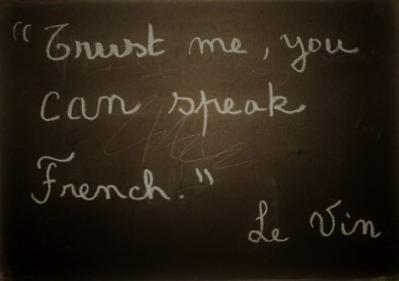 “Trust me, you
can speak
French.”
Le Vin